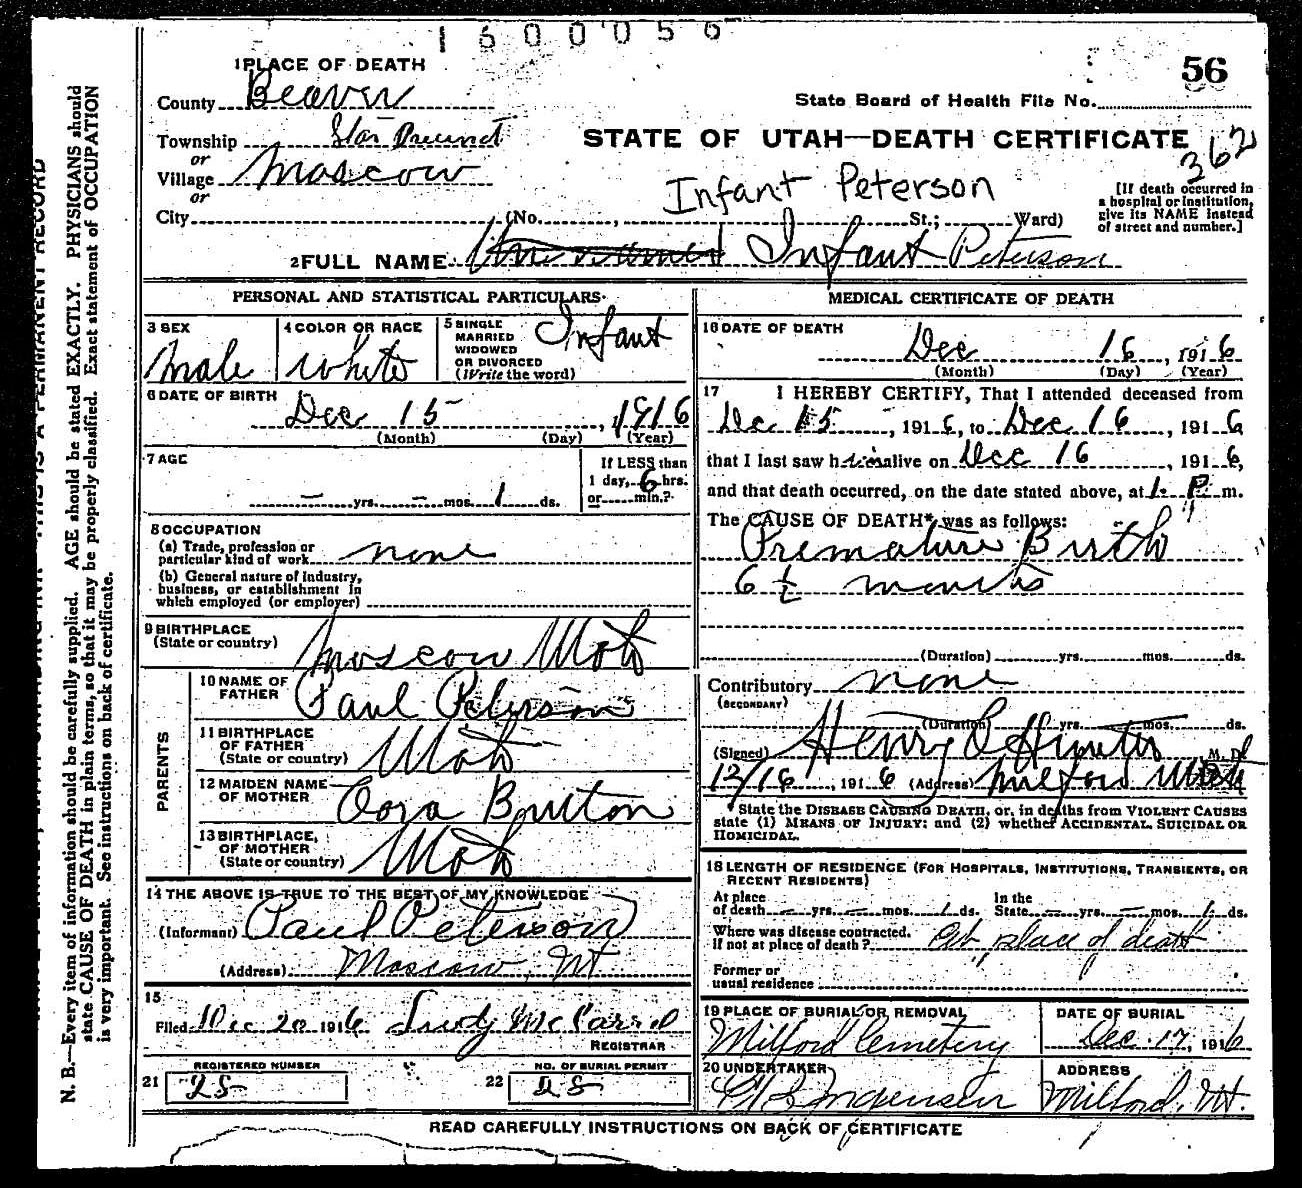 1600056
56
1 PLACE OF DEATH
County Beaver
State Board of Health File No.
Township Star Precinct
STATE OF UTAH—DEATH CERTIFICATE
362
or
Village Moscow
Infant Peterson
[If death occurred in a hospital or institution, give its NAME instead of street and number.]
or
City (No. , St.; Ward)
2 FULL NAME Infant Peterson
PERSONAL AND STATISTICAL PARTICULARS
3 SEX Male
4 COLOR OR RACE White
5 SINGLE MARRIED WIDOWED OR DIVORCED (Write the word) Infant
6 DATE OF BIRTH Dec 15, 1916
(Month) (Day) (Year)
7 AGE – yrs. – mos. 1 ds.
If LESS than 1 day, 6 hrs. or min.?
8 OCCUPATION
(a) Trade, profession or particular kind of work none
(b) General nature of industry, business, or establishment in which employed (or employer)
9 BIRTHPLACE (State or country) Moscow Utah
PARENTS
10 NAME OF FATHER Paul Peterson
11 BIRTHPLACE OF FATHER (State or country) Utah
12 MAIDEN NAME OF MOTHER Cora Bruton
13 BIRTHPLACE OF MOTHER (State or country) Utah
14 THE ABOVE IS TRUE TO THE BEST OF MY KNOWLEDGE
(Informant) Paul Peterson
(Address) Moscow, Ut
15
Filed Dec 20 1916 McCarrel
REGISTRAR
REGISTERED NUMBER
21 28
NO. OF BURIAL PERMIT
22 28
MEDICAL CERTIFICATE OF DEATH
16 DATE OF DEATH
Dec 16, 1916
(Month) (Day) (Year)
17 I HEREBY CERTIFY, That I attended deceased from
Dec 15, 1916, to Dec 16, 1916
that I last saw him alive on Dec 16, 1916,
and that death occurred, on the date stated above, at 1 P. m.
The CAUSE OF DEATH* was as follows:
Premature Birth
6 1/2 months
(Duration) yrs. mos. ds.
Contributory none
(SECONDARY)
(Duration) yrs. mos. ds.
(Signed) Henry C Hunter M. D.
12/16, 1916 (Address) Milford Utah
State the DISEASE CAUSING DEATH, or, in deaths from VIOLENT CAUSES state (1) MEANS OF INJURY; and (2) whether ACCIDENTAL, SUICIDAL OR HOMICIDAL.
18 LENGTH OF RESIDENCE (FOR HOSPITALS, INSTITUTIONS, TRANSIENTS, OR RECENT RESIDENTS)
At place of death – yrs. – mos. 1 ds. In the State – yrs. – mos. 1 ds.
Where was disease contracted. If not at place of death? At place of death
Former or usual residence
19 PLACE OF BURIAL OR REMOVAL Milford Cemetery
DATE OF BURIAL Dec 17, 1916
20 UNDERTAKER
ADDRESS Milford, Ut.
READ CAREFULLY INSTRUCTIONS ON BACK OF CERTIFICATE
N. B.—Every item of information should be carefully supplied. AGE should be stated EXACTLY. PHYSICIANS should
state CAUSE OF DEATH in plain terms, so that it may be properly classified. Exact statement of OCCUPATION
is very important. See instructions on back of certificate.